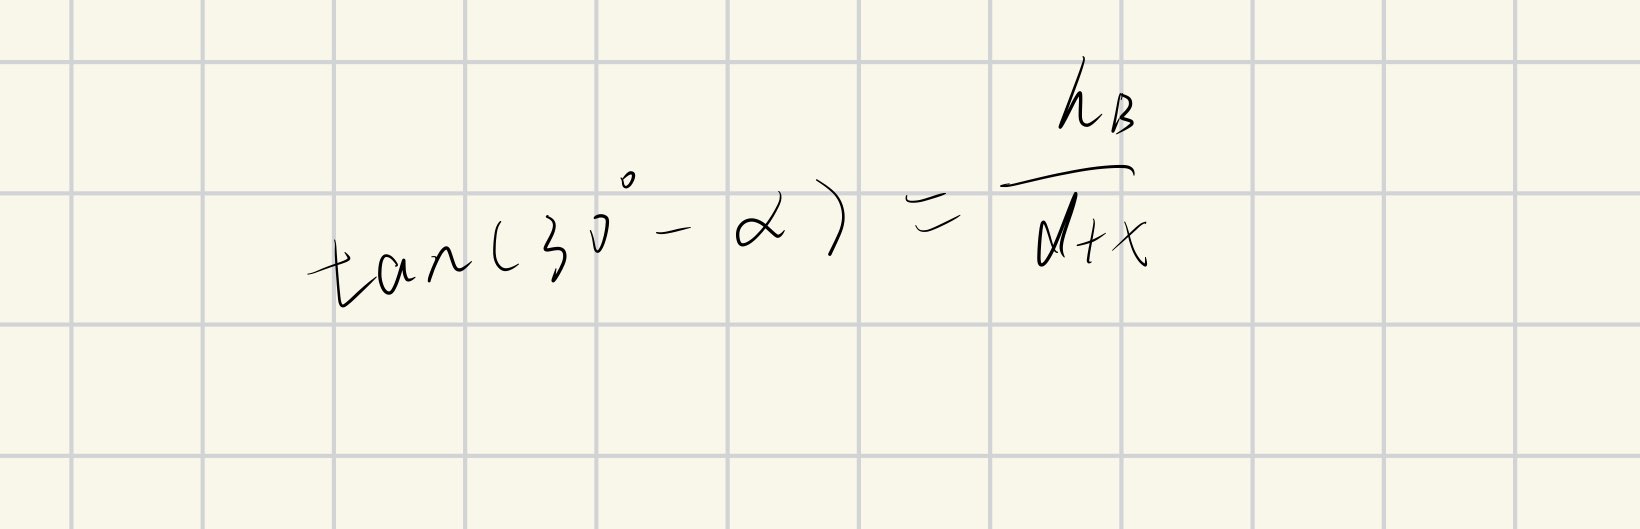 tan(30° - α) = h_B / (d+x)